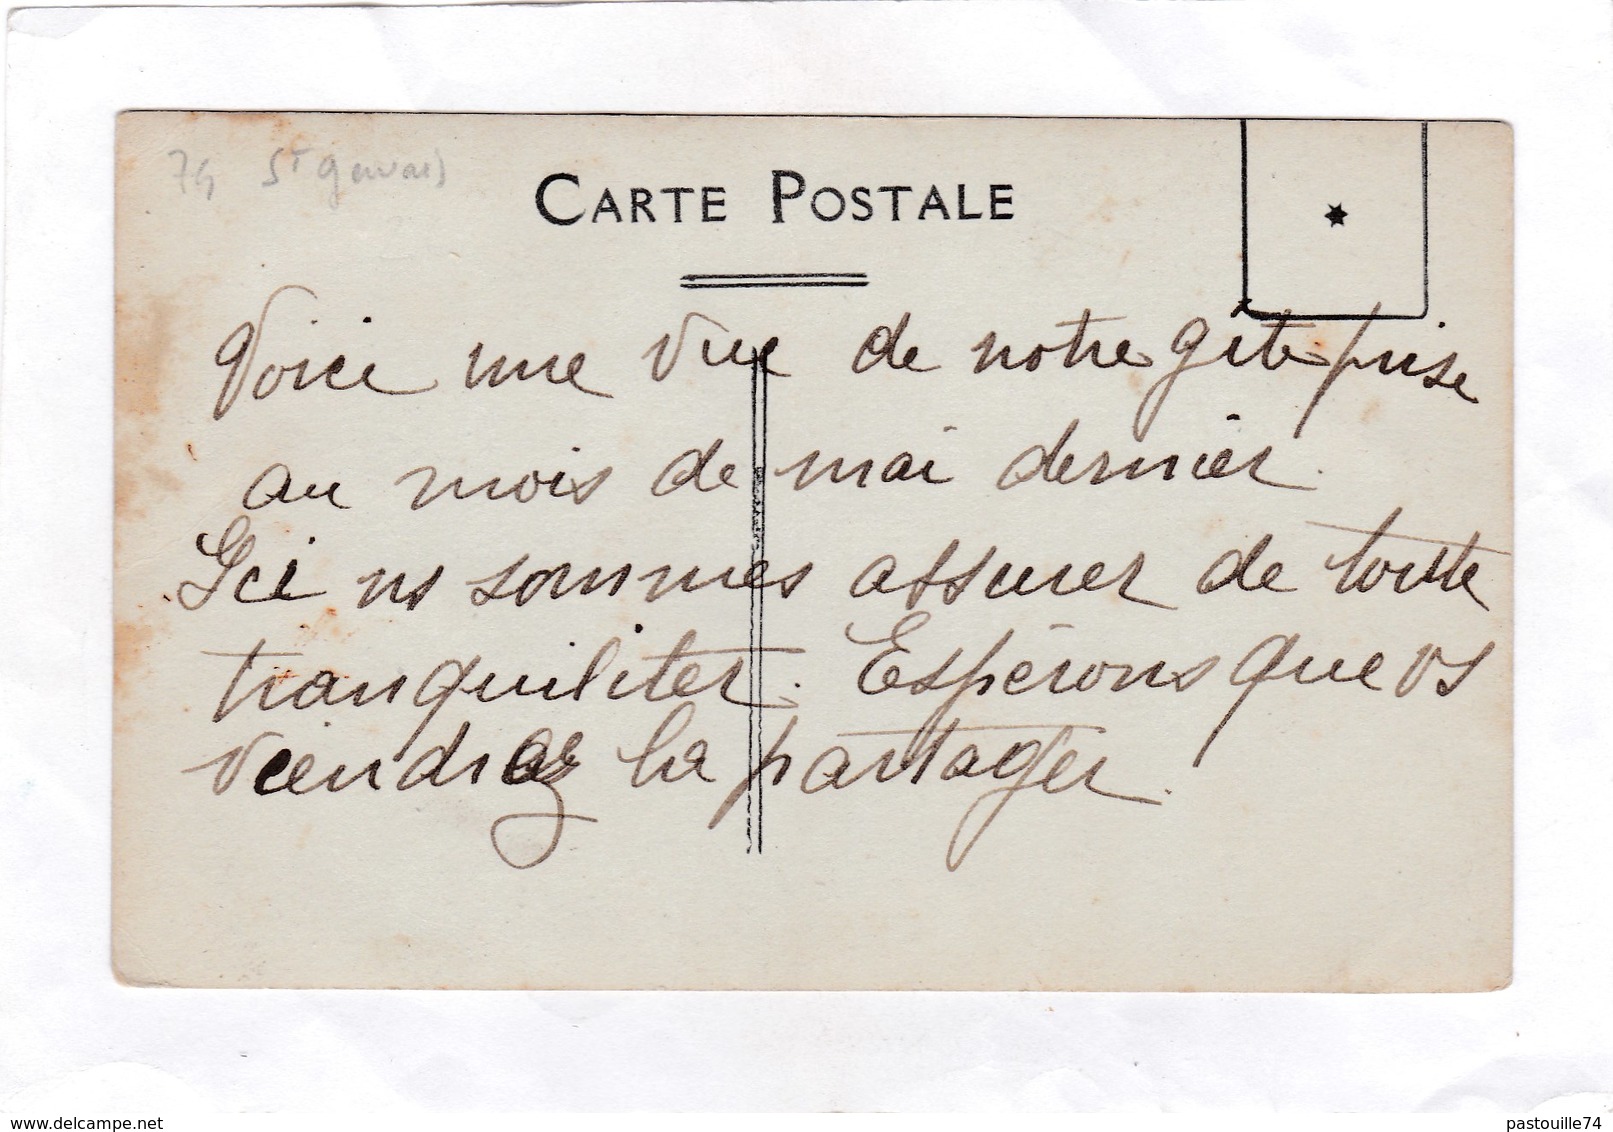 74 St Gervais
CARTE POSTALE
Voici une vue de notre gîte prise
au mois de mai dernier.
Ici ns sommes assurer de toute
tranquiliter. Espérons que vs
viendrez la partager.
www.delcampe.net
pastouille74